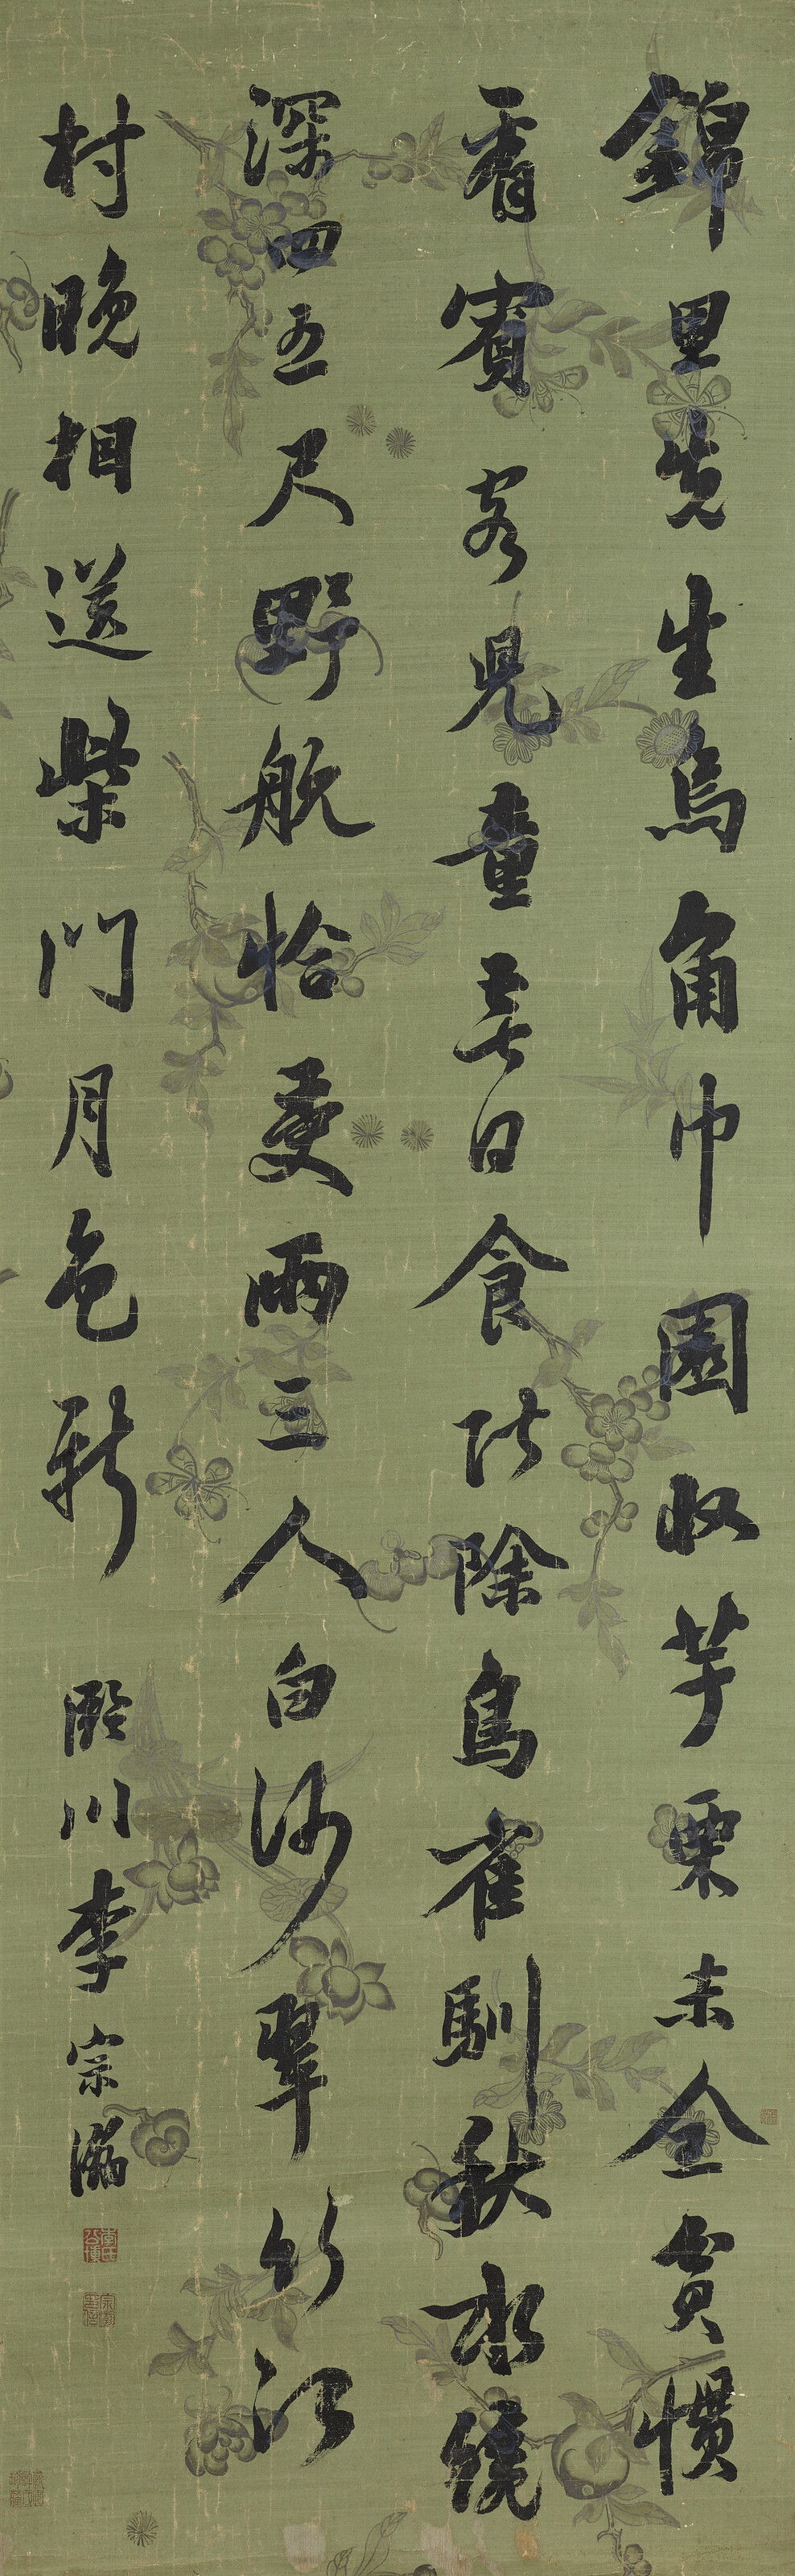 錦里先生烏角巾園收芋栗未全貧慣
看賓客兒童喜食階除鳥雀馴秋水纔
深四五尺野航恰受兩三人白沙翠竹江
村晚相送柴門月色新 臨川李宗瀚
李氏公博